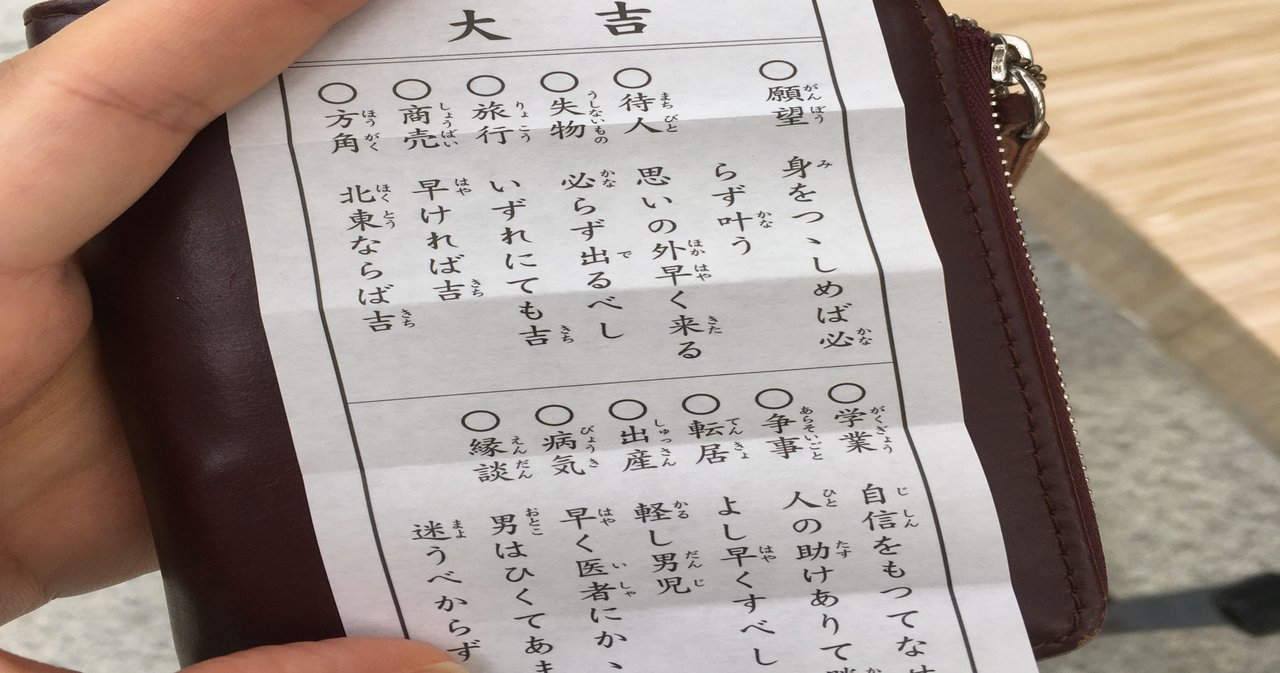 大吉
○願望 身をつゝしめば必
がんぼう み かな
らず叶う
かな
○待人 思いの外早く来る
まちびと ほかはや きた
○失物 必らず出るべし
うしないもの かな で
○旅行 いずれにても吉
りょこう きち
○商売 早ければ吉
しょうばい はや きち
○方角 北東ならば吉
ほうがく ほくとう きち
○学業 自信をもつてな
がくぎょう じしん
○争事 人の助けありて
あらそいごと ひと たす か
○転居 よし早くすべし
てんきょ はや
○出産 軽し男児
しゅっさん かる だんじ
○病気 早く医者にかゝ
びょうき はや いしゃ
○縁談 男はひくてあま
えんだん おとこ
迷うべからず
まよ